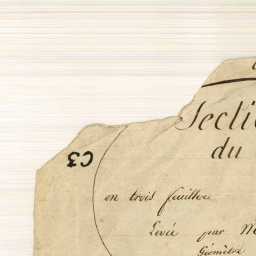 Secti
du
C3
en trois feuilles
Levée par M
Géomètre